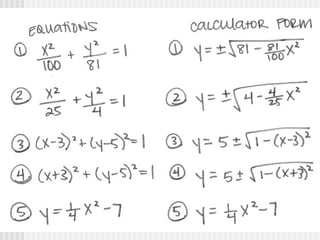 EQUATIONS
① x²/100 + y²/81 = 1
② x²/25 + y²/4 = 1
③ (x-3)² + (y-5)² = 1
④ (x+3)² + (y-5)² = 1
⑤ y = 1/4 x² - 7
CALCULATOR FORM
① y = ±√(81 - 81/100 x²)
② y = ±√(4 - 4/25 x²)
③ y = 5 ± √(1-(x-3)²)
④ y = 5 ± √(1-(x+3)²)
⑤ y = 1/4 x² - 7